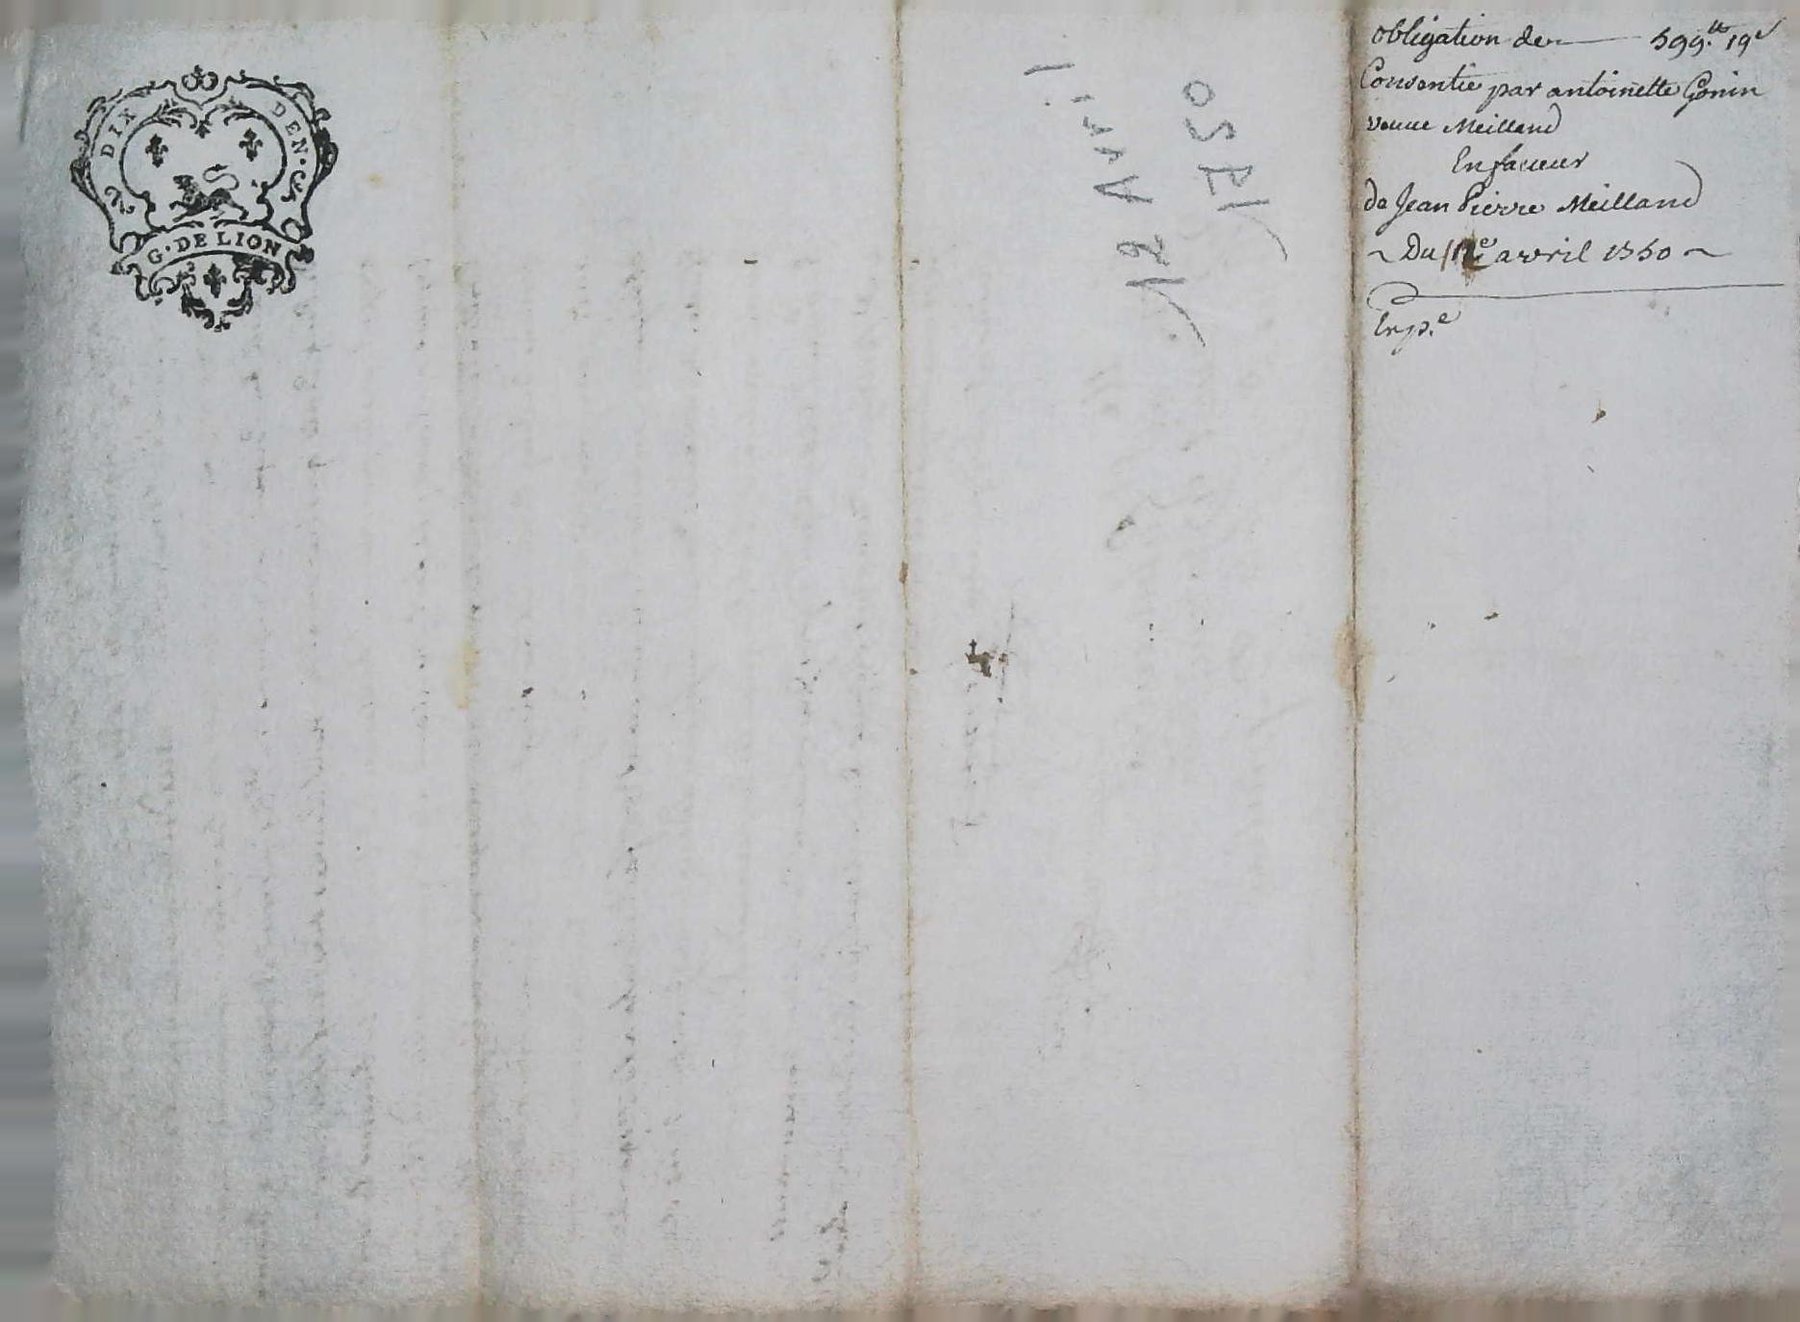 DIX DEN.
G. DE LION
12 Avril
1750
obligation de 599.tt 19s
Consentie par antoinette Gonin
veuue Meilland
En faueur
de Jean Pierre Meilland
~ Du 12e avril 1750 ~
Exp.e